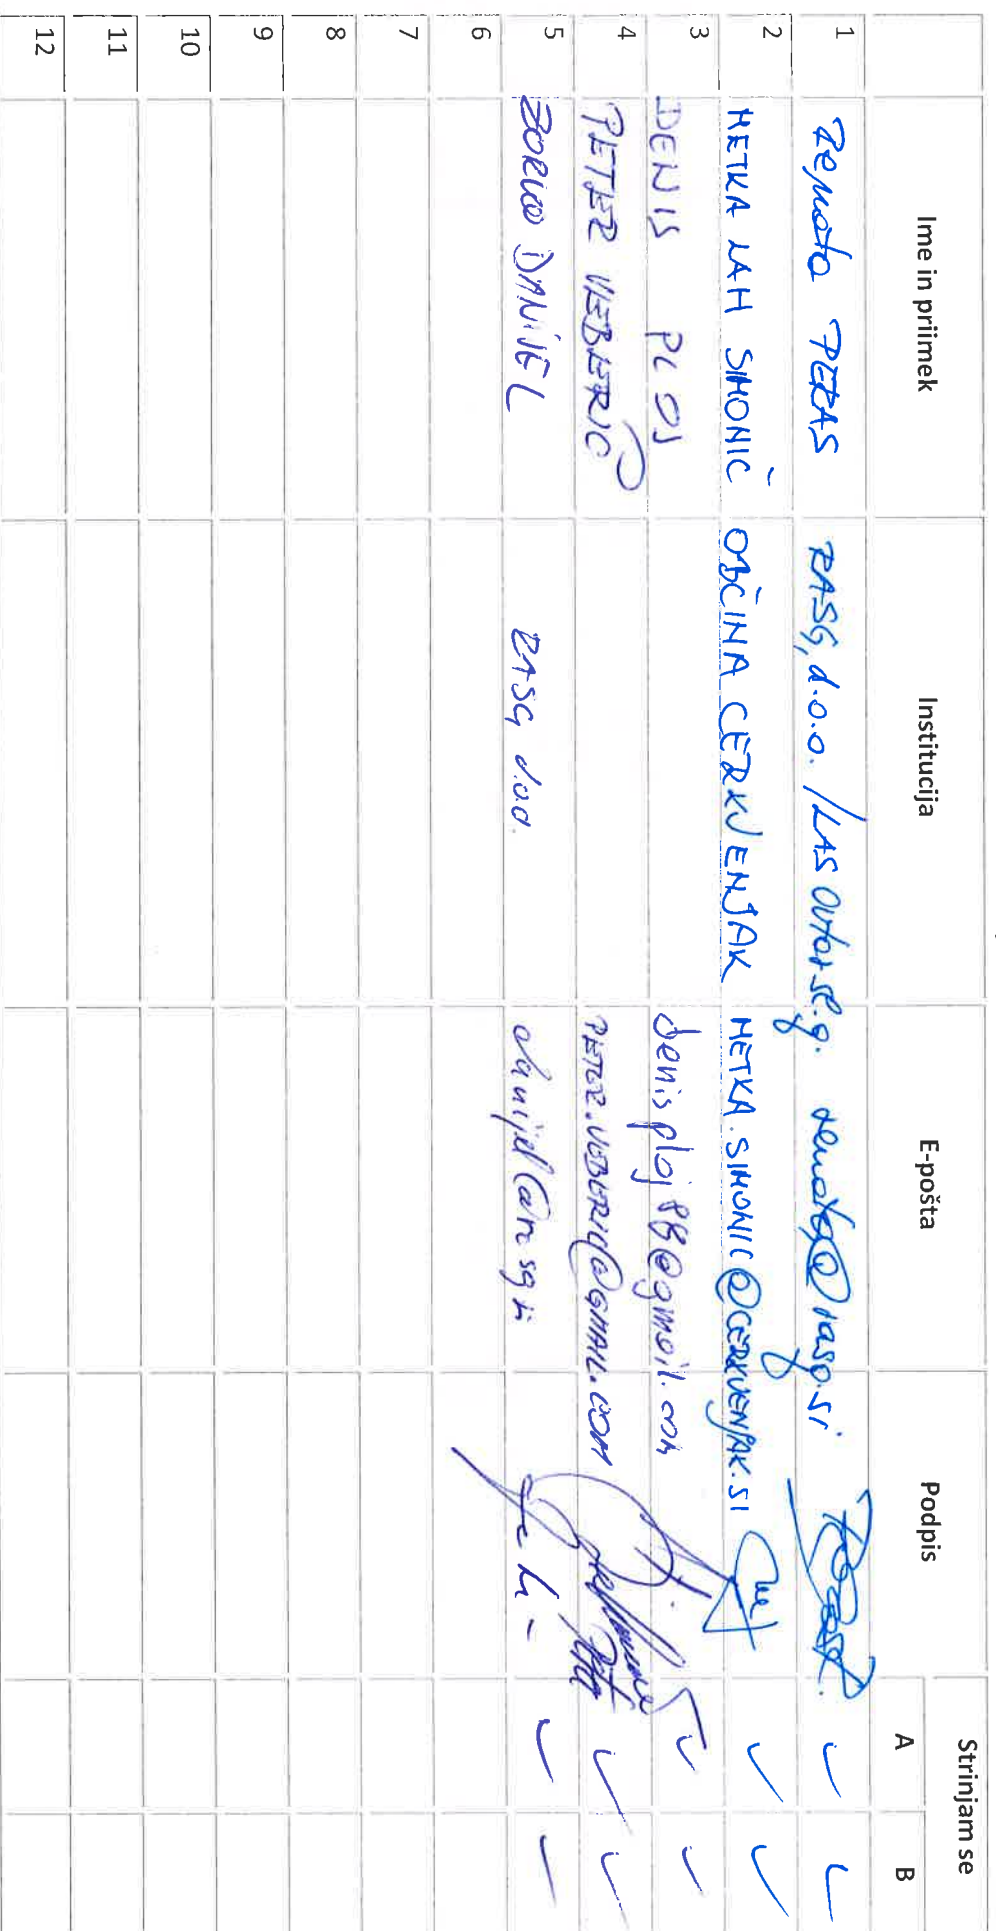 Ime in priimek Institucija E-pošta Podpis Strinjam se
A B
1 Renata PERAS RASG, d.o.o. / LAS Ovtar sl. g. renata@rasg.si
2 METKA LAH SIMONIČ OBČINA CERKVENJAK METKA.SIMONIC@CERKVENJAK.SI
3 DENIS PLOJ denisploj88@gmail.com
4 PETER VEBERIČ PETER.VEBERIC@GMAIL.COM
5 ZORKO DANIJEL RASG d.o.o. danijel@rasg.si
6
7
8
9
10
11
12